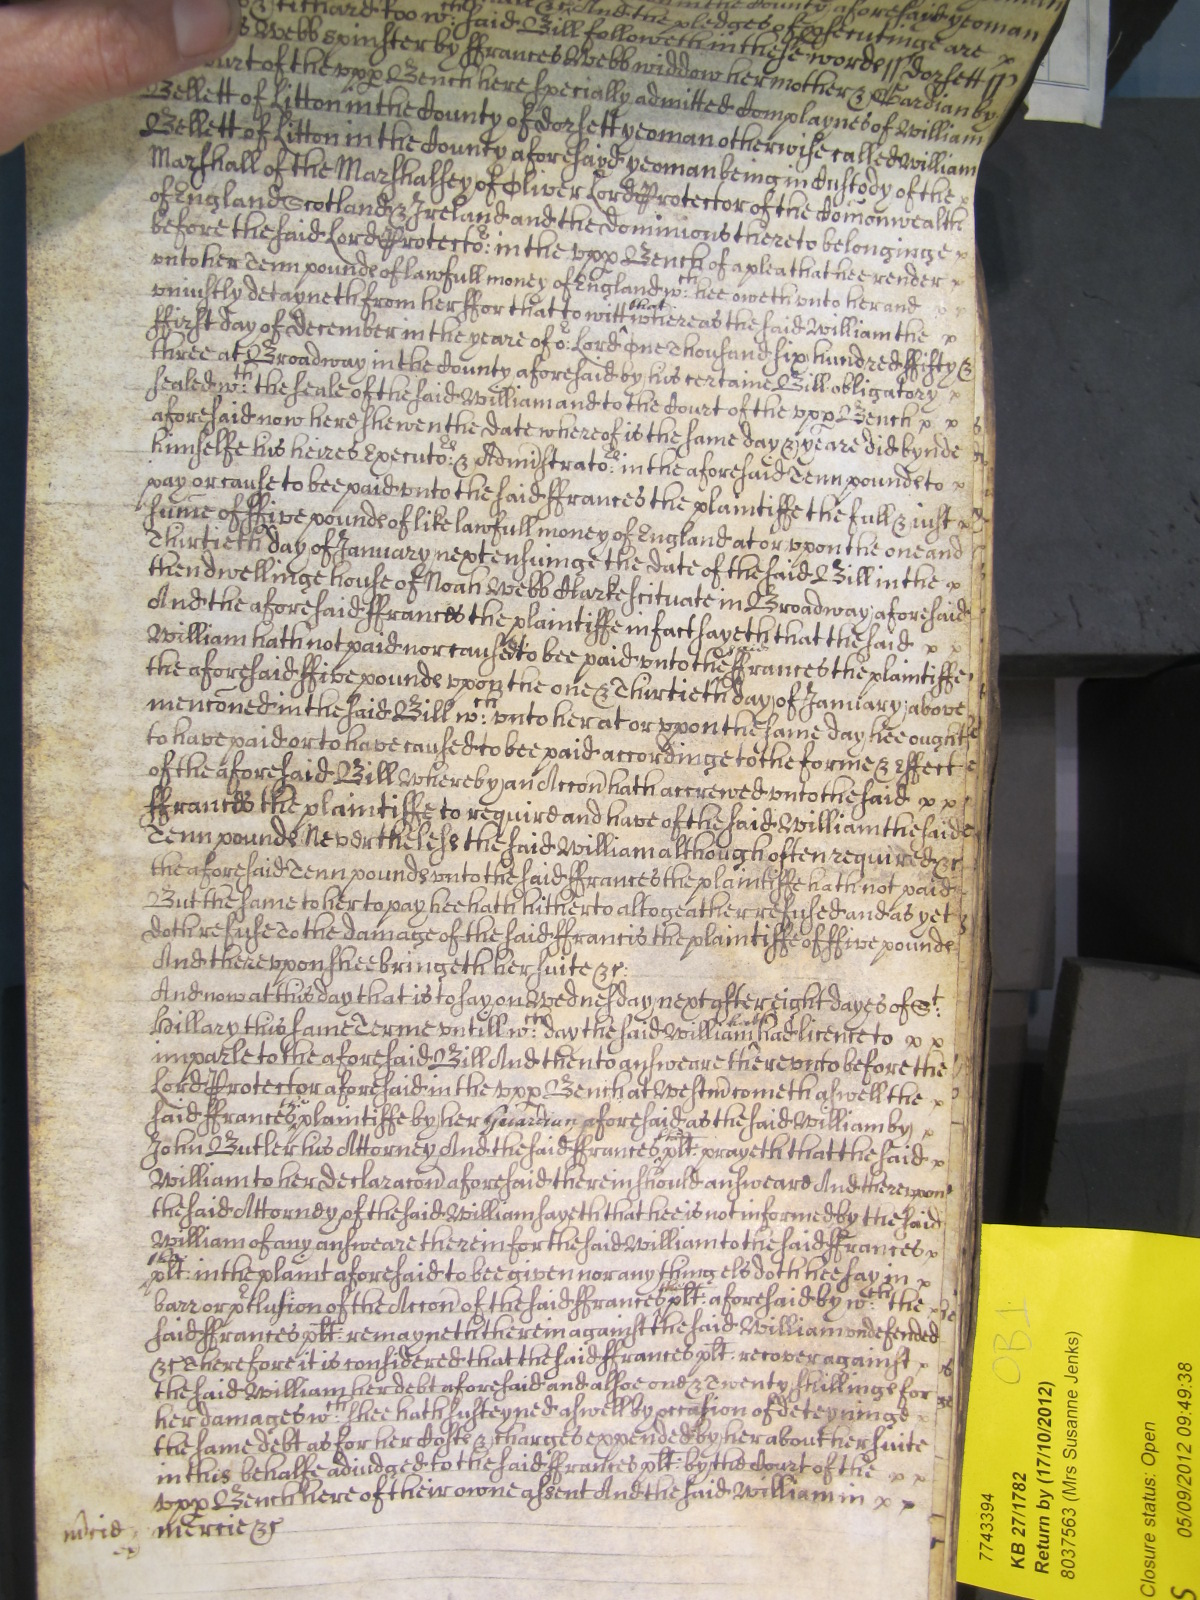 in the County aforesaid yeoman
& Richard Roo wch: said Bill followeth in these words // Dorsett //
s Webb spinster by ffrances Webb widdow her mother & Gardian by
Court of the vpp Bench here specially admitted Complaynes of William
Bellett of Litton in the County of Dorsett yeoman otherwise called William
Bellett of Litton in the County aforesayd yeoman being in Custody of the x
Marshall of the Marshalsey of Oliver Lord Protector of the Comonwealth
of England Scotland & Ireland and the dominions thereto belonginge x
before the said Lord Protector: in the vpp Bench of a plea that hee render x
vnto her Tenn pounds of lawfull money of England wch: hee oweth vnto her and
vniustly detayneth from her ffor that to witt that whereas the said William the x
ffirst day of December in the yeare of or: Lord One Thousand six hundred ffifty &
three at Broadway in the County aforesaid by his certaine Bill obligatory x
sealed wth: the seale of the said William and to the Court of the vpp Bench x x
aforesaid now here shewen the date whereof is the same day & yeare did bynde
himselfe his heires Executors: & Administrators: in the aforesaid Tenn pounds to x
pay or cause to bee paid vnto the said ffrances the plaintiffe the full & iust x
sume of ffive pounds of like lawfull money of England at or vpon the one and
Thirtieth day of January next ensuinge the date of the said Bill in the x
then dwellinge house of Noah Webb Clarke scituate in Broadway aforesaid
And the aforesaid ffrances the plaintiffe in fact sayeth that the said x x
William hath not paid nor caused to bee paid vnto the said ffrances the plaintiffe
the aforesaid ffive pounds vpon the one & Thirtieth day of January above
menconed in the said Bill wch: vnto her at or vpon the same day hee ought
to have paid or to have caused to bee paid accordinge to the forme & effect
of the aforesaid Bill Whereby an Accon hath accrewed vnto the said x x
ffrances the plaintiffe to require and have of the said William the said
Tenn pounds Neverthelesse the said William although often required &c
the aforesaid Tenn pounds vnto the said ffrances the plaintiffe hath not paid
But the same to her to pay hee hath hitherto altogeather refused and as yet
doth refuse To the damage of the said ffrancis the plaintiffe of ffive pounds
And therevpon shee bringeth her suite &c:
And now at this day that is to say on Wednesday next after eight dayes of St:
Hillary this same Terme vntill wch: day the said William had licence to x x
imparle to the aforesaid Bill And then to answeare there vnto before the
Lord Protector aforesaid in the vpp Bench at Westm cometh aswell the x
said ffrances the plaintiffe by her Guardian aforesaid as the said William by x
John Butler his Attorney And the said ffrances the plt: prayeth that the said x
William to her declaracon aforesaid therein should answeare And therevpon
the said Attorney of the said William sayeth that hee is not informed by the said
William of any answeare therein for the said William to the said ffrances x
the plt: in the plaint aforesaid to bee given nor any thing els doth hee say in x
barr or p'clusion of the Accon of the said ffrances the plt: aforesaid by wch: the x
said ffrances plt: remayneth therein against the said William vndefended
&c Therefore it is considered that the said ffrances plt: recover against x
the said William her debt aforesaid and alsoe one & Twenty shillings for
her damages wch: shee hath susteyned aswell by occasion of deteyninge x
the same debt as for her Costs & charges expended by her about her suite
in this behalfe adiudged to the said ffrances plt: by the Court of the x x
vpp Bench here of their owne assent And the said William in x x
mercie &c
mcie
7743394
KB 27/1782
Return by (17/10/2012)
8037563 (Mrs Susanne Jenks)
OB 1
Closure status: Open
05/09/2012 09:49:38
S